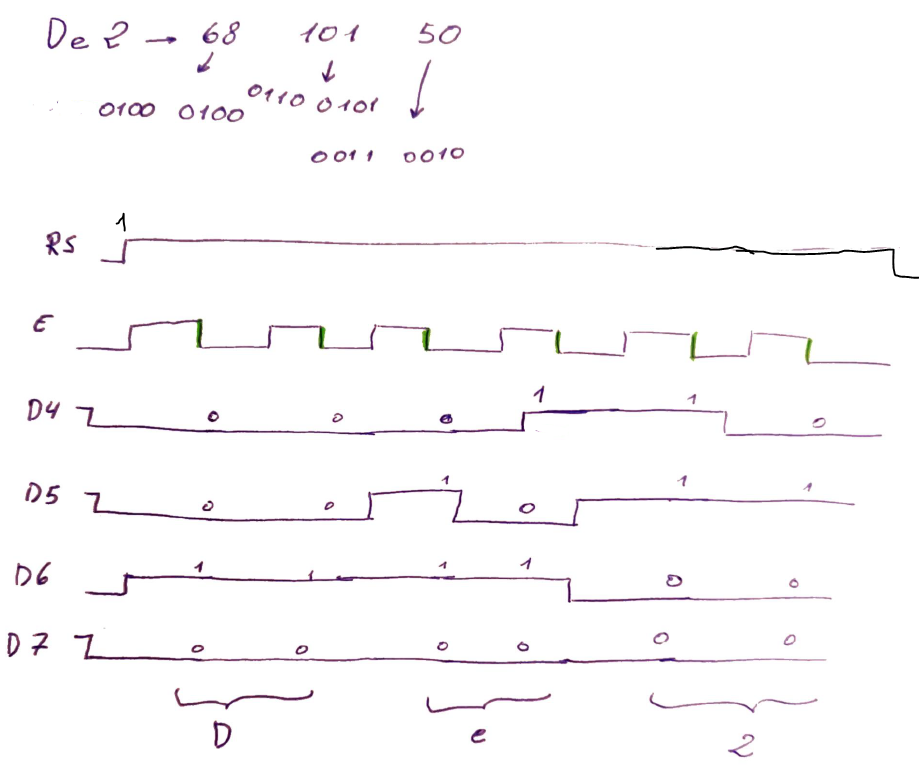 De2 → 68 101 50
0100 0100 0110 0101
0011 0010
1
RS
E
D4 0 0 0 1 1 0
D5 0 0 1 0 1 1
D6 1 1 1 1 0 0
D7 0 0 0 0 0 0
D e 2